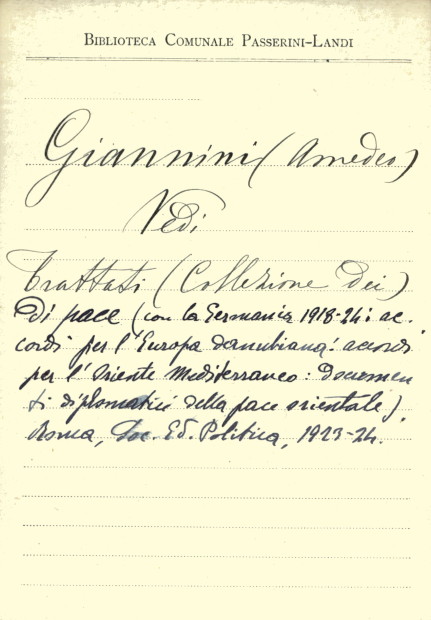 BIBLIOTECA COMUNALE PASSERINI-LANDI
Giannini (Amedeo)
Vedi
Trattati (Collezione dei)
di pace (con la Germania 1918-24: ac-
cordi per l'Europa danubiana: accordi
per l'Oriente Mediterraneo: Documen
ti diplomatici della pace orientale).
Roma, Soc. Ed. Politica, 1923-24.